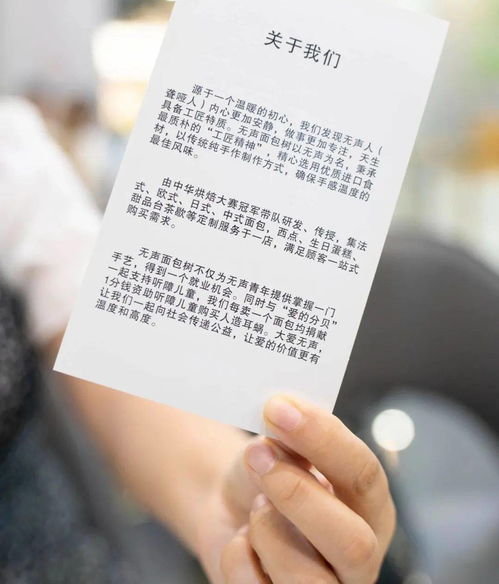 关于我们
源于一个温暖的初心，我们发现无声人（
聋哑人）内心更加安静，做事更加专注，天生
具备工匠特质。无声面包树以无声为名，秉承
最质朴的“工匠精神”，精心选用优质进口食
材，以传统纯手作制作方式，确保手感温度的
最佳风味。
由中华烘焙大赛冠军带队研发、传授，集法
式、欧式、日式、中式面包，西点、生日蛋糕、
甜品台茶歇等定制服务于一店，满足顾客一站式
购买需求。
无声面包树不仅为无声青年提供掌握一门
手艺，得到一个就业机会。同时与“爱的分贝”
一起支持听障儿童，我们每卖一个面包均捐献
1分钱资助听障儿童购买人造耳蜗。大爱无声，
让我们一起向社会传递公益，让爱的价值更有
温度和高度。